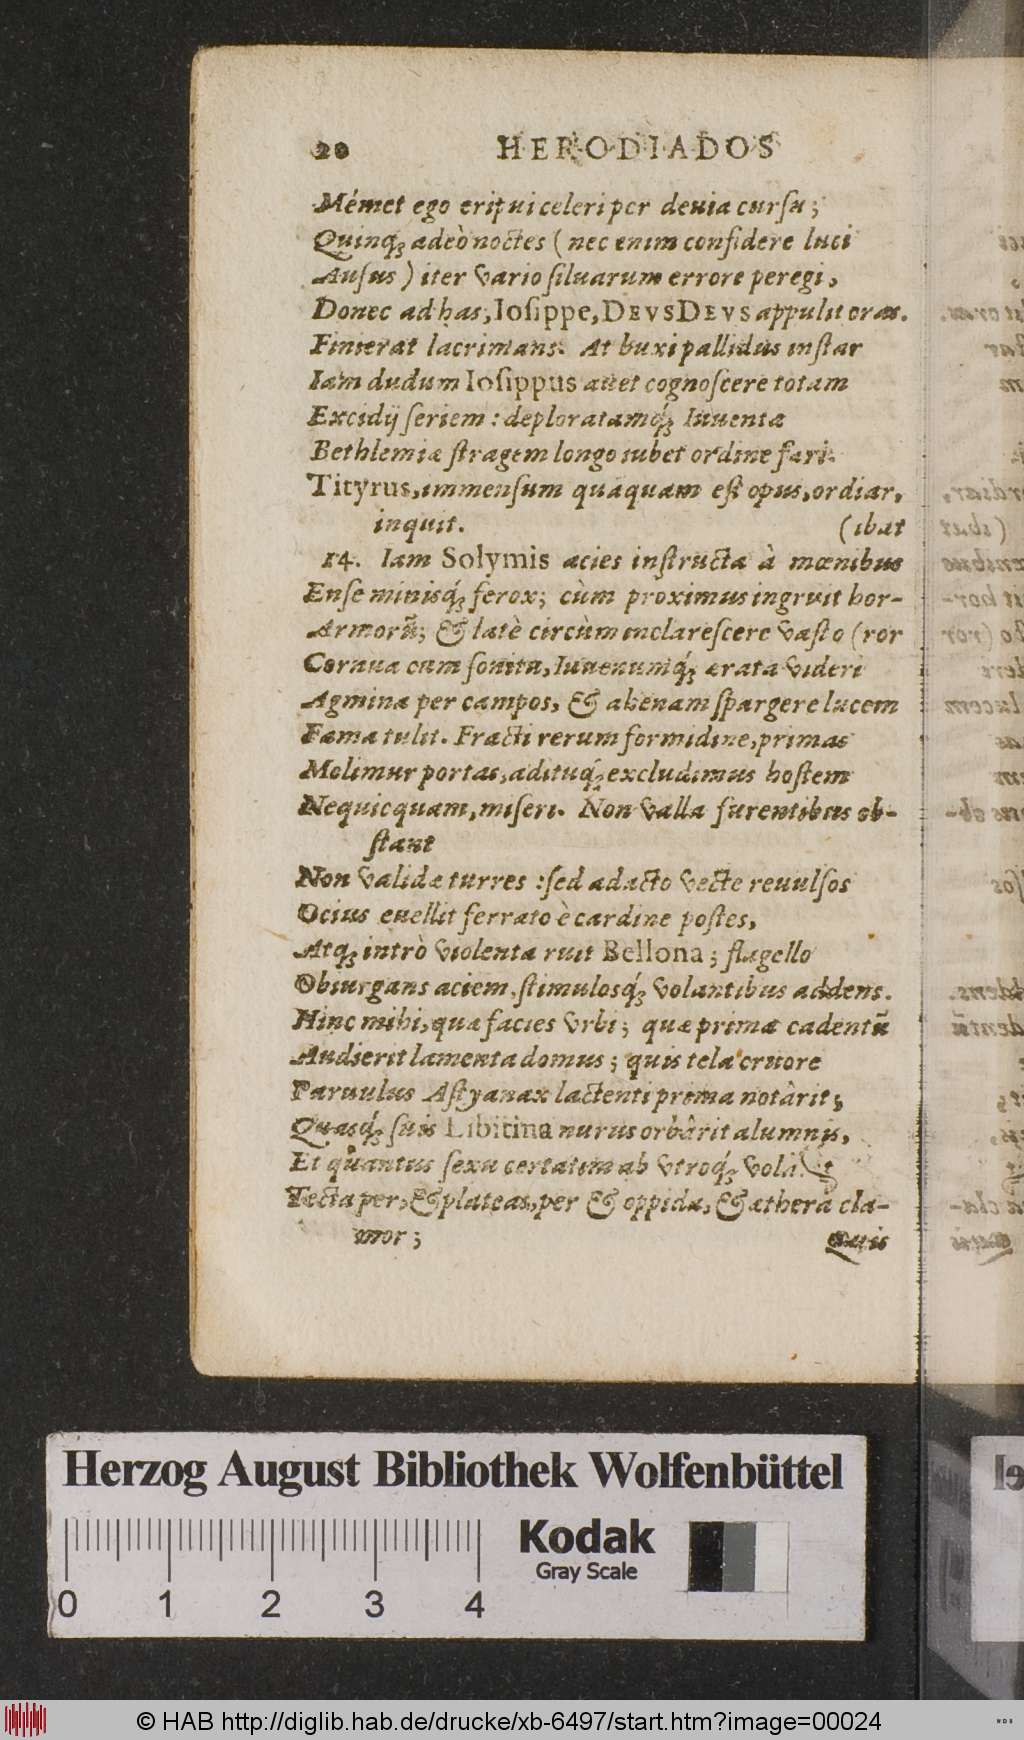 20 HERODIADOS
Mémet ego eripui celeri per deuia cursu;
Quinq; adeò noctes (nec enim confidere luci
Ausus) iter vario siluarum errore peregi,
Donec ad has, Iosippe, DEVS DEVS appulit oras.
Finierat lacrimans. At buxi pallidus instar
Iam dudum Iosippus auet cognoscere totam
Excidij seriem: deploratamq́; Iuuentæ
Bethlemiæ stragem longo iubet ordine fari.
Tityrus, immensum quaquam est opus, ordiar,
inquit. (ibat
14. Iam Solymis acies instructa à mœnibus
Ense minisq́; ferox; cùm proximus ingruit hor-
Armorũ; & latè circùm inclarescere vasto (ror
Cornua cum sonitu, Iuuenumq́; ærata videri
Agmina per campos, & ahenam spargere lucem
Fama tulit. Fracti rerum formidine, primas
Molimur portas, adituq́; excludimus hostem
Nequicquam, miseri. Non valla furentibus ob-
stant
Non validæ turres: sed adacto vecte reuulsos
Ocius euellit ferrato è cardine postes,
Atq; intrò violenta ruit Bellona; flagello
Obiurgans aciem, stimulosq́; volantibus addens.
Hinc mihi, quæ facies vrbi; quæ primæ cadentũ
Audierit lamenta domus; quis tela cruore
Paruulus Astyanax lactenti prima notârit;
Quasq́; suis Libitina nurus orbârit alumnis,
Et quantus sexu certatim ab vtroq́;
Tecta per, & plateas, per & oppida, & æthera cla-
mor; Quis
Herzog August Bibliothek Wolfenbüttel
Kodak
Gray Scale
0 1 2 3 4
© HAB http://diglib.hab.de/drucke/xb-6497/start.htm?image=00024